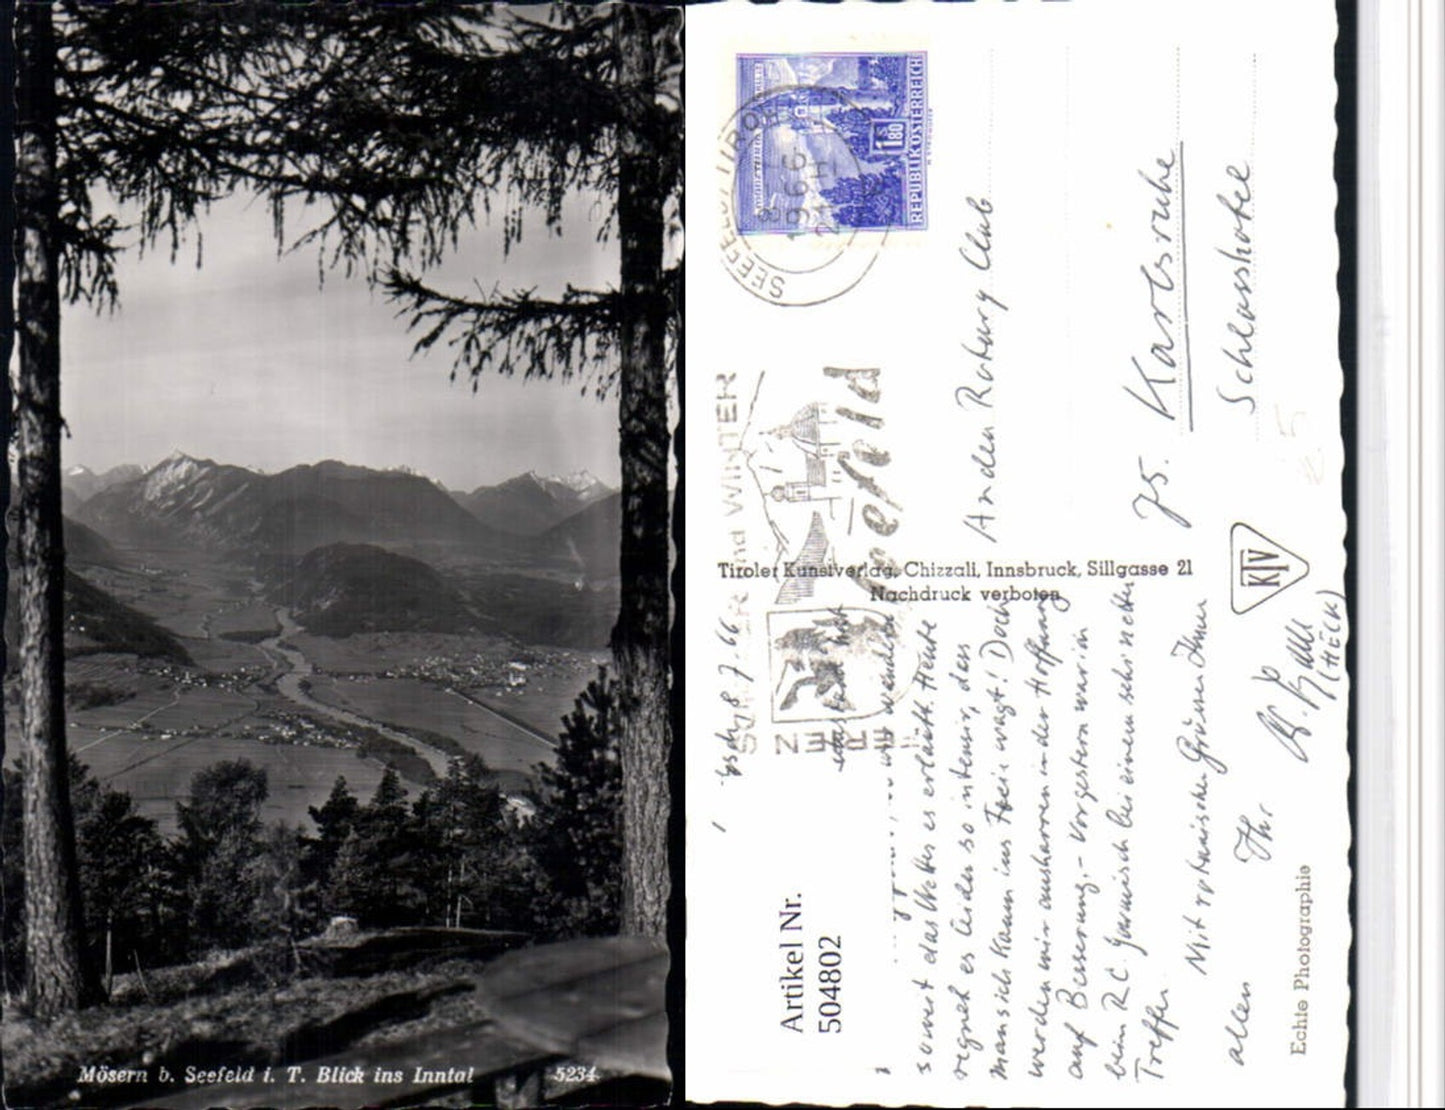 Mösern b. Seefeld i. T. Blick ins Inntal 5234
REPUBLIK ÖSTERREICH
1 S 80
SEEFELD TIROL
WINTER
Seefeld
Tiroler Kunstverlag, Chizzali, Innsbruck, Sillgasse 21
Nachdruck verboten
KTV
An den Rotary Club
75. Karlsruhe
Schlosshotel
8.7.66
wir wandern
soweit das Wetter es erlaubt. Heute
regnet es leider so intensiv, dass
man sich kaum ins Freie wagt! Doch
werden wir ausharren in der Hoffnung
auf Besserung. - Vorgestern war ich
beim R.C. Garmisch bei einem sehr netten
Treffen.
Mit rotarischen Grüssen Ihnen
allen Ihr
(HECK)
Echte Photographie
Artikel Nr.
504802